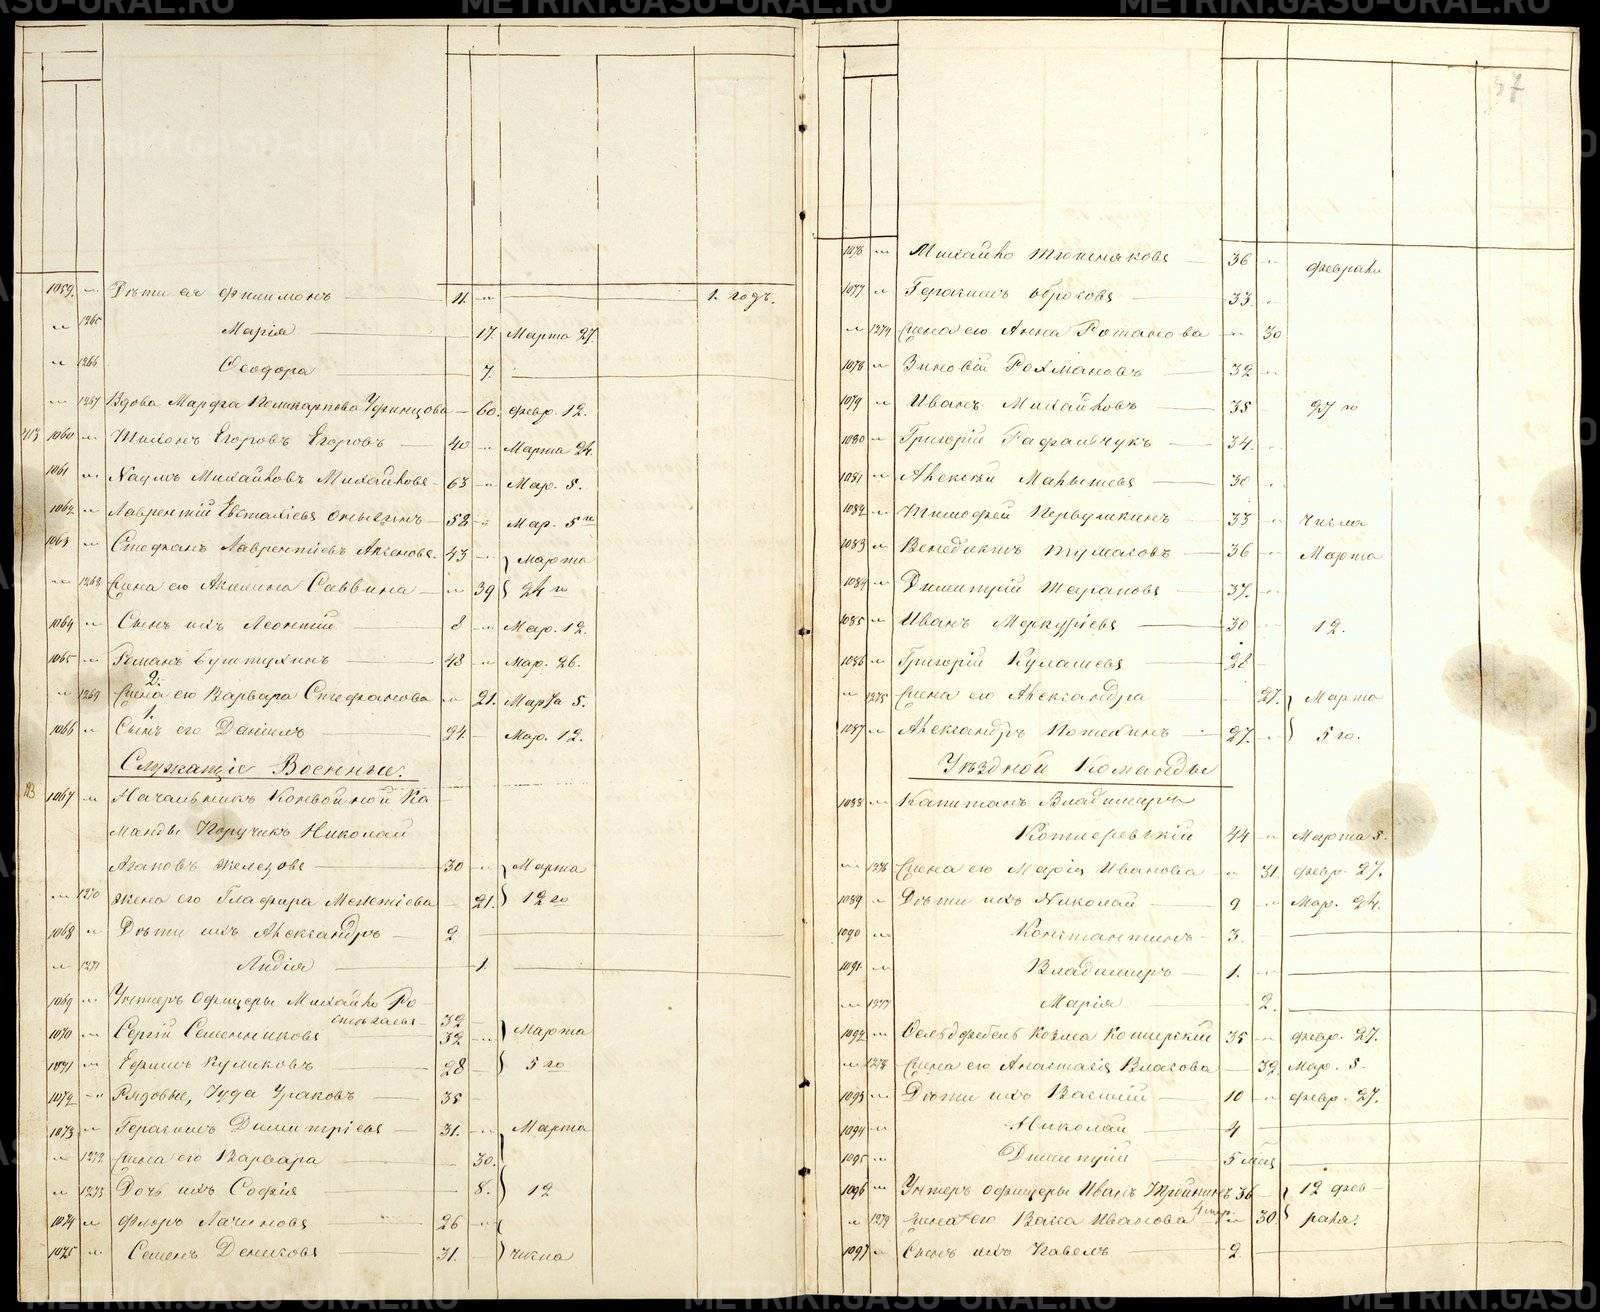 37
1059. Дѣти ея Филимонъ 11. 1. годъ.
1265 Марія 17. Марта 27.
1266 Ѳеодора 7.
1267 Вдова Марѳа Поликарпова 60. Февр. 12.
1060 Тихонъ Егоровъ Егоровъ 40 Марта 24.
1061 Наумъ Михайловъ Михайловъ 63 Мар. 5.
1062 Лаврентій 52 Мар. 5 го
1063 Стефанъ Лаврентіевъ Аксеновъ 43 Марта
1268 Жена его Акилина Саввина 39 24 го
1064 Сынъ ихъ Леонтій 8 Мар. 12.
1065 Романъ 43 Мар. 26.
2.
1269 Жена его Варвара Стефанова 21. Марта 5.
1.
1066 Сынъ его Даніилъ 24. Мар. 12.
Служащіе Военные.
1067 Начальникъ Конвойной Ко
манды Поручикъ Николай
Агаповъ Железовъ 30 Марта
1270 жена его Глафира Мелетіева 21. 12 го
1068 Дѣти ихъ Александръ 2
1271 Лидія 1.
1069 Унтеръ Офицеры Михайло Ро
32
1070 Сергій 32 Марта
1071 Ефимъ Куликовъ 28 5 го
1072 Рядовые, Іуда Ураковъ 35
1073 Герасимъ Димитріевъ 31. Марта
1272 Жена его Варвара 30.
1273 Дочь ихъ Софія 8. 12
1074 Флоръ Лачиновъ 26
1075 Семенъ Дениковъ 31. числа
1076 Михайло 36 февраля
1077 Герасимъ Оброковъ 33.
1274 Жена его Анна Романова 30
1078 Зиновій Рохмановъ 32
1079 Иванъ Михайловъ 35 27 го
1080 Григорій Рафальчукъ 34.
1081 Алексѣй Малышевъ 30
1082 Тимофей Первушкинъ 33 числа
1083 Венедиктъ Тумаковъ 36 Марта
1084 Димитрій Шараповъ 37.
1085 Иванъ Меркурьевъ 30 12.
1086 Григорій Кулашевъ 28
1275 Жена его Александра 27. Марта
1087 Александръ Потехинъ 27. 5 го.
Уѣздной Команды
1088 Капитанъ Владимиръ
Котлеревскій 44 Марта 5.
1276 Жена его Марія Иванова 31. февр. 27.
1089 Дѣти ихъ Николай 9 Мар. 24.
1090 Константинъ 3.
1091. Владимиръ 1.
1277 Марія 2.
1092 Фельдфебель Козма 35 февр. 27.
1278 Жена его Анастасія Власова 32 Мар. 5.
1093 Дѣти ихъ Василій 10 февр. 27.
1094 Николай 4
1095 Димитрій 5 мѣс
1096 Унтеръ Офицеры Иванъ 36 12 фев
1279 жена его Васса Иванова 30. раля.
1097 Сынъ ихъ Павелъ 2
METRIKI.GASO-URAL.RU